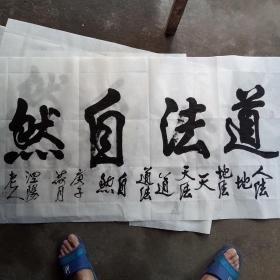 道法自然
人法地
地法天
天法道
道法自然
庚子
荷月
涇陽
老人